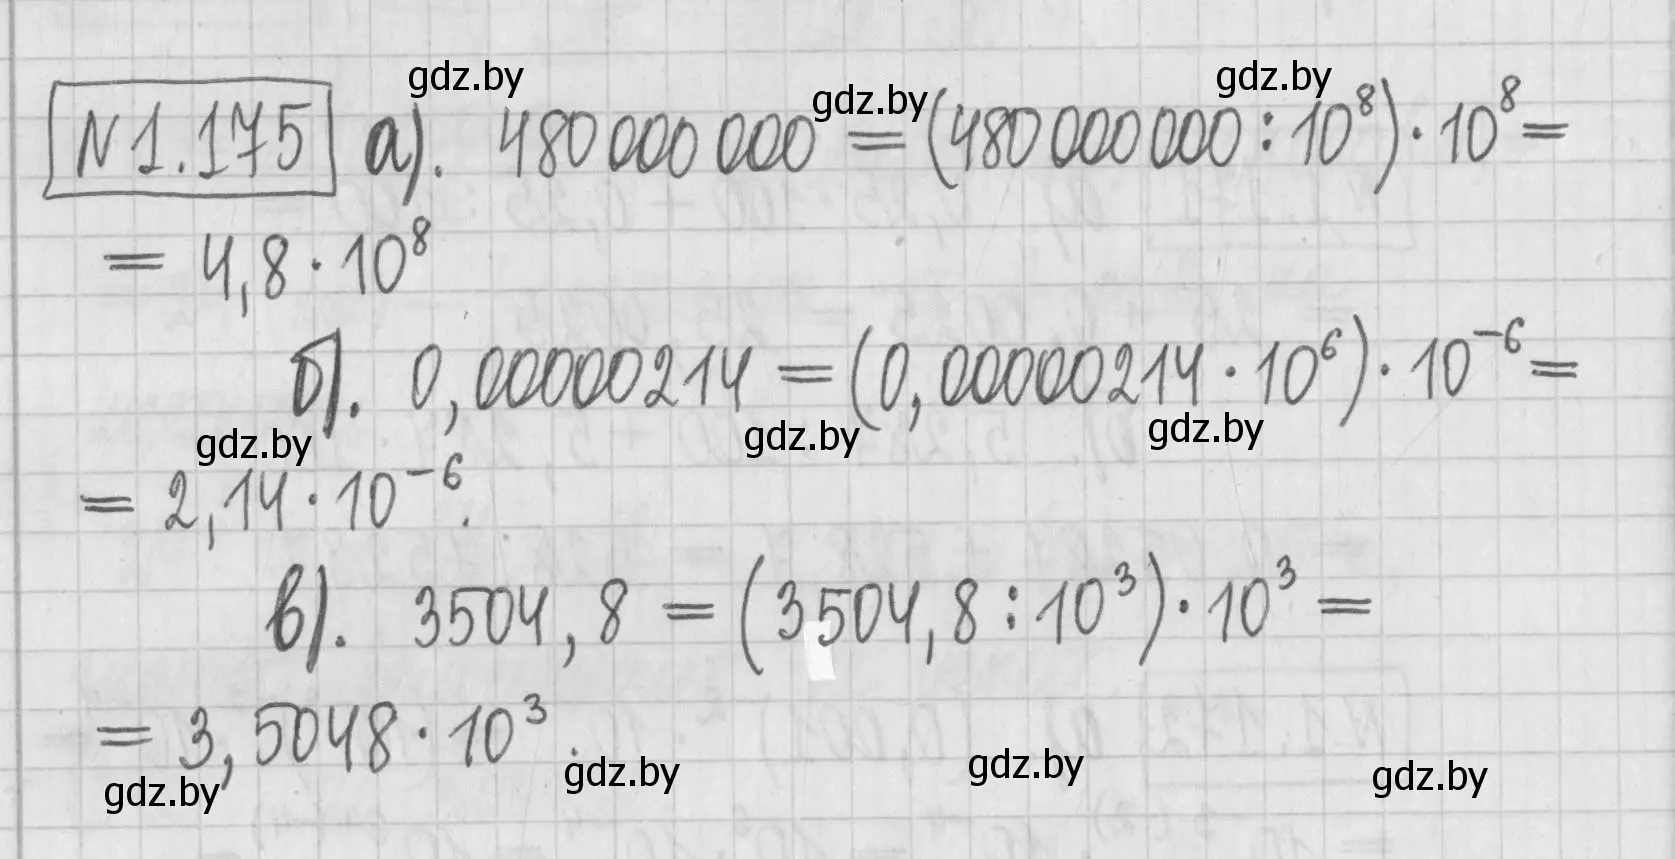 gdz.by gdz.by gdz.by
N1.175 а). 480 000 000 = (480 000 000 : 10⁸) · 10⁸ =
= 4,8 · 10⁸
б). 0,00000214 = (0,00000214 · 10⁶) · 10⁻⁶ =
gdz.by gdz.by gdz.by
= 2,14 · 10⁻⁶.
в). 3504,8 = (3504,8 : 10³) · 10³ =
= 3,5048 · 10³.
gdz.by gdz.by gdz.by gdz.by